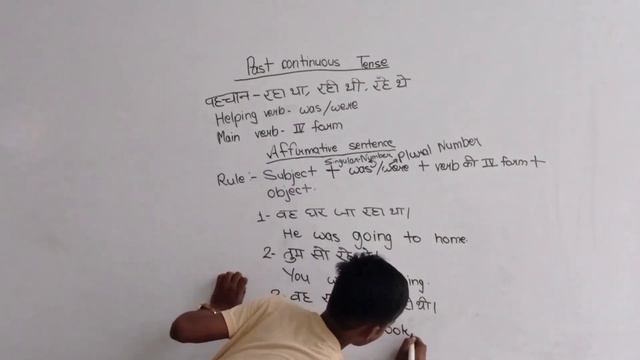 Past continuous Tense
पहचान - रहा था, रही थी, रहे थे
Helping verb - was/were
Main verb - IV form
Affirmative sentence
Singular Number Plural Number
Rule:- Subject + was/were + verb की IV form +
object.
1- वह घर जा रहा था।
He was going to home.
2- तुम सो रहे
You
वह थी।
ook.